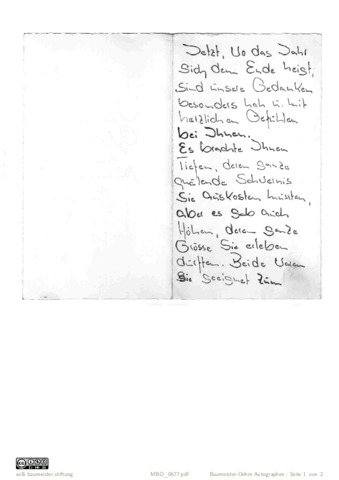 Jetzt, wo das Jahr
sich dem Ende neigt,
sind unsere Gedanken
besonders nah u. mit
herzlichen Gefühlen
bei Ihnen.
Es brachte Ihnen
Tiefen, deren ganze
quälende Schwernis
Sie auskosten mussten,
aber es gab auch
Höhen, deren ganze
Grösse Sie erleben
durften. Beide waren
Sie geeignet zum
willi baumeister stiftung
MBO_0677.pdf
Baumeister-Oehm Autographen : Seite 1 von 2